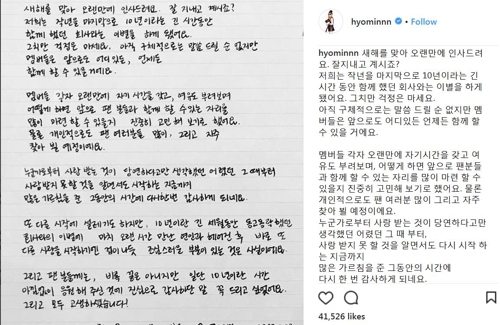 새해를 맞아 오랜만에 인사드려요. 잘 지내고 계시죠?
저희는 작년을 마지막으로 10년이라는 긴 시간동안
함께 했던 회사와는 이별을 하게 됐어요.
그치만 걱정은 마세요. 아직 구체적으로는 말씀 드릴 순 없지만
멤버들은 앞으로도 어디있든, 언제든
함께 할 수 있을 거예요.
멤버들 각자 오랜만에 자기 시간을 갖고, 여유도 부려보며
어떻게 하면 앞으로 팬 분들과 함께 할 수 있는 자리를
많이 마련 할 수 있을지 진중히 고민해 보기로 했어요.
물론 개인적으로도 팬 여러분들 많이, 그리고 자주
찾아 뵐 예정이에요.
누군가로부터 사랑 받는 것이 당연하다고만 생각했던 어렸던 그 때부터
사랑받지 못할 것을 알면서도 시작하는 지금까지
많은 가르침을 준 그동안의 시간에 다시한번 감사하게 되네요.
또 다른 시작에 설레기도 하지만, 10년이란 긴 세월동안 동고동락했던
회사와의 이별에 마치 오랜 시간 만난 연인과 헤어진 후 바로 또
다른 사랑을 시작하기엔 겁이나듯, 조심스러운 부분이 있는 것도 사실이에요.
그리고 팬 분들께는, 비록 끝은 아니지만 일단 10년이란 시간
아낌없이 응원해 주신 것에 진심으로 감사하단 말 꼭 드리고 싶었어요.
그리고 모두 고생하셨습니다!
hyominnn • Follow
hyominnn 새해를 맞아 오랜만에 인사드려
요. 잘지내고 계시죠?
저희는 작년을 마지막으로 10년이라는 긴
시간 동안 함께 했던 회사와 이별을 하게
됐어요. 그치만 걱정은 마세요.
아직 구체적으로는 말씀 드릴 순 없지만 멤
버들은 앞으로도 어디있든 언제든 함께 할
수 있을 거에요.
멤버들 각자 오랜만에 자기시간을 갖고 여
유도 부려보며, 어떻게 하면 앞으로 팬분들
과 함께 할 수 있는 자리를 많이 마련 할 수
있을지 진중히 고민해 보기로 했어요. 물론
개인적으로도 팬 여러분 많이 그리고 자주
찾아 뵐 예정이에요.
누군가로부터 사랑 받는 것이 당연하다고만
생각했던 어렸던 그 때 부터,
사랑 받지 못 할 것을 알면서도 다시 시작 하
는 지금까지
많은 가르침을 준 그동안의 시간에
다시 한 번 감사하게 되네요.
41,526 likes